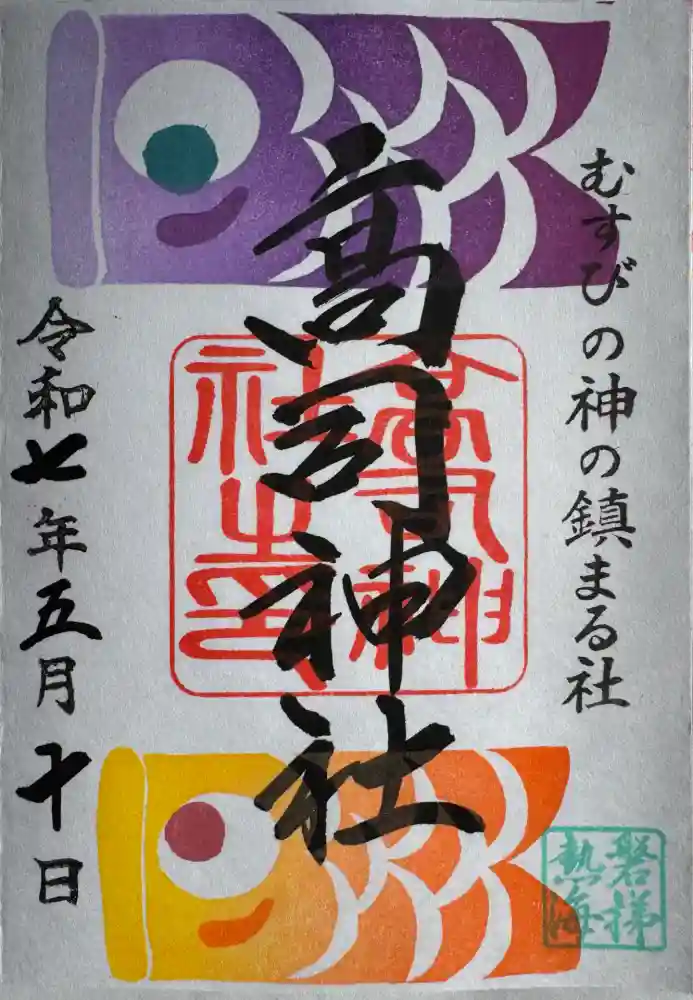 むすびの神の鎮まる社
高司神社
高司神
社之印
令和七年五月十日
磐梯
熱海